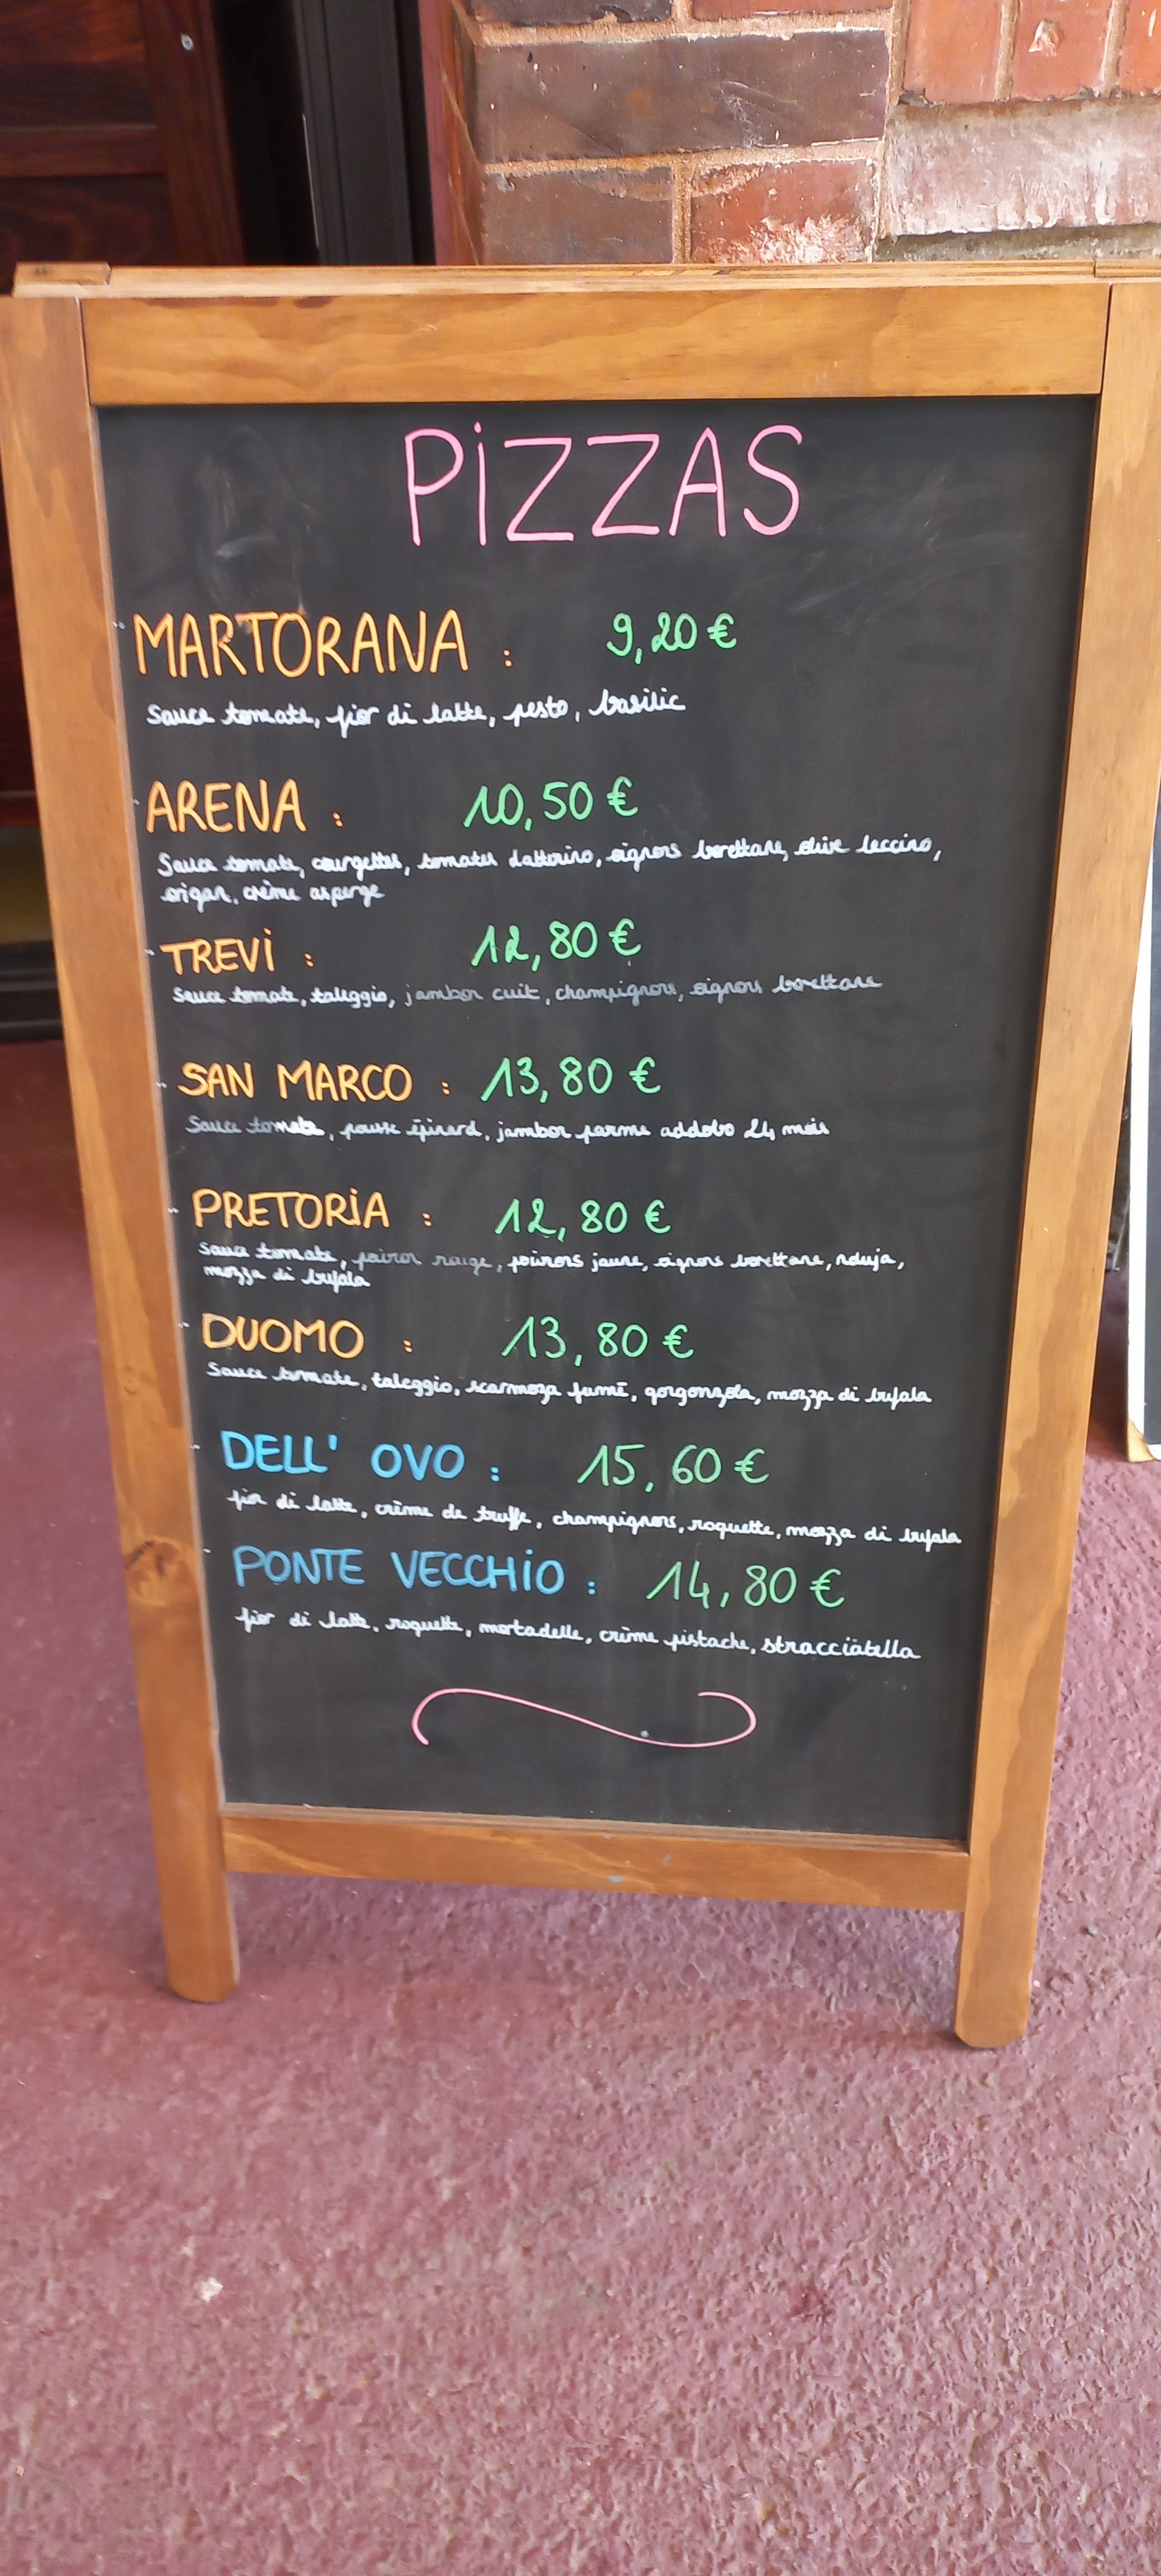 PIZZAS
MARTORANA : 9,20 €
Sauce tomate, fior di latte, pesto, basilic
ARENA : 10,50 €
Sauce tomate, courgettes, tomates datterino, oignons borettane, olive leccino,
origan, crème asperge
TREVI : 12,80 €
Sauce tomate, taleggio, jambon cuit, champignons, oignons borettane
SAN MARCO : 13,80 €
Sauce tomate, pousse épinard, jambon parme addobo 24 mois
PRETORIA : 12,80 €
Sauce tomate, poivron rouge, poivrons jaune, oignons borettane, nduja,
mozza di bufala
DUOMO : 13,80 €
Sauce tomate, taleggio, scarmoza fumé, gorgonzola, mozza di bufala
DELL' OVO : 15,60 €
fior di latte, crème de truffe, champignons, roquette, mozza di bufala
PONTE VECCHIO : 14,80 €
fior di latte, roquette, mortadelle, crème pistache, stracciatella